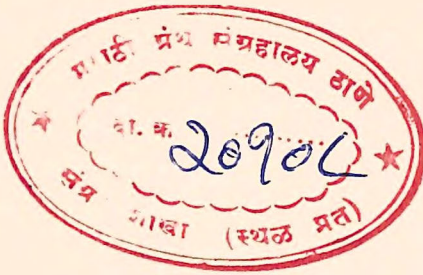 मराठी ग्रंथ संग्रहालय ठाणे
दा. क्र. २०१०८
संग्र शाखा (स्थळ प्रत)